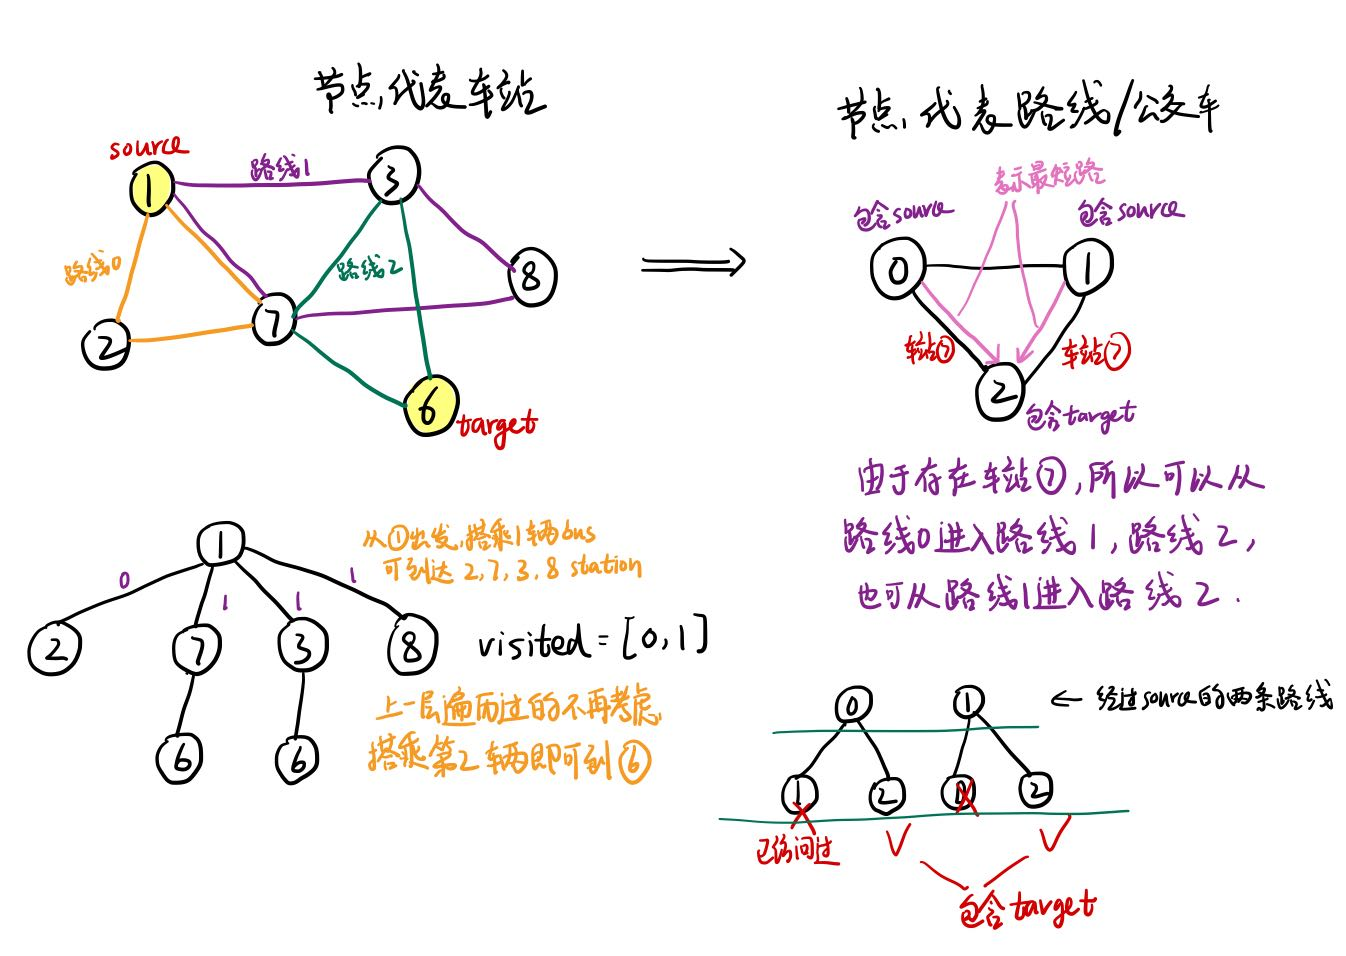 节点代表车站
source
1
路线1
3
路线0
路线2
8
7
2
6
target
节点代表路线/公交车
表示最短路
包含source
包含source
0
1
车站⑦
车站⑦
2
包含target
由于存在车站⑦,所以可以从
路线0进入路线1,路线2,
也可从路线1进入路线2.
1
从①出发,搭乘1辆bus
可到达2,7,3,8 station
0
1
1
1
2
7
3
8
visited=[0,1]
上一层遍历过的不再考虑,
搭乘第2辆即可到⑥
6
6
0
1
← 经过source的两条路线
1
2
0
2
已经问过
包含target